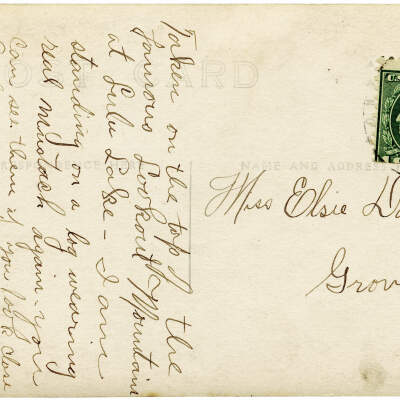 Taken on the top of the
famous Lookout Mountain
at Lulu Lake - I am
standing on a log wearing
real mustach again - you
can see them if you look close
POST CARD
CORRESPONDENCE HERE
NAME AND ADDRESS
Miss Elsie Da
Grov